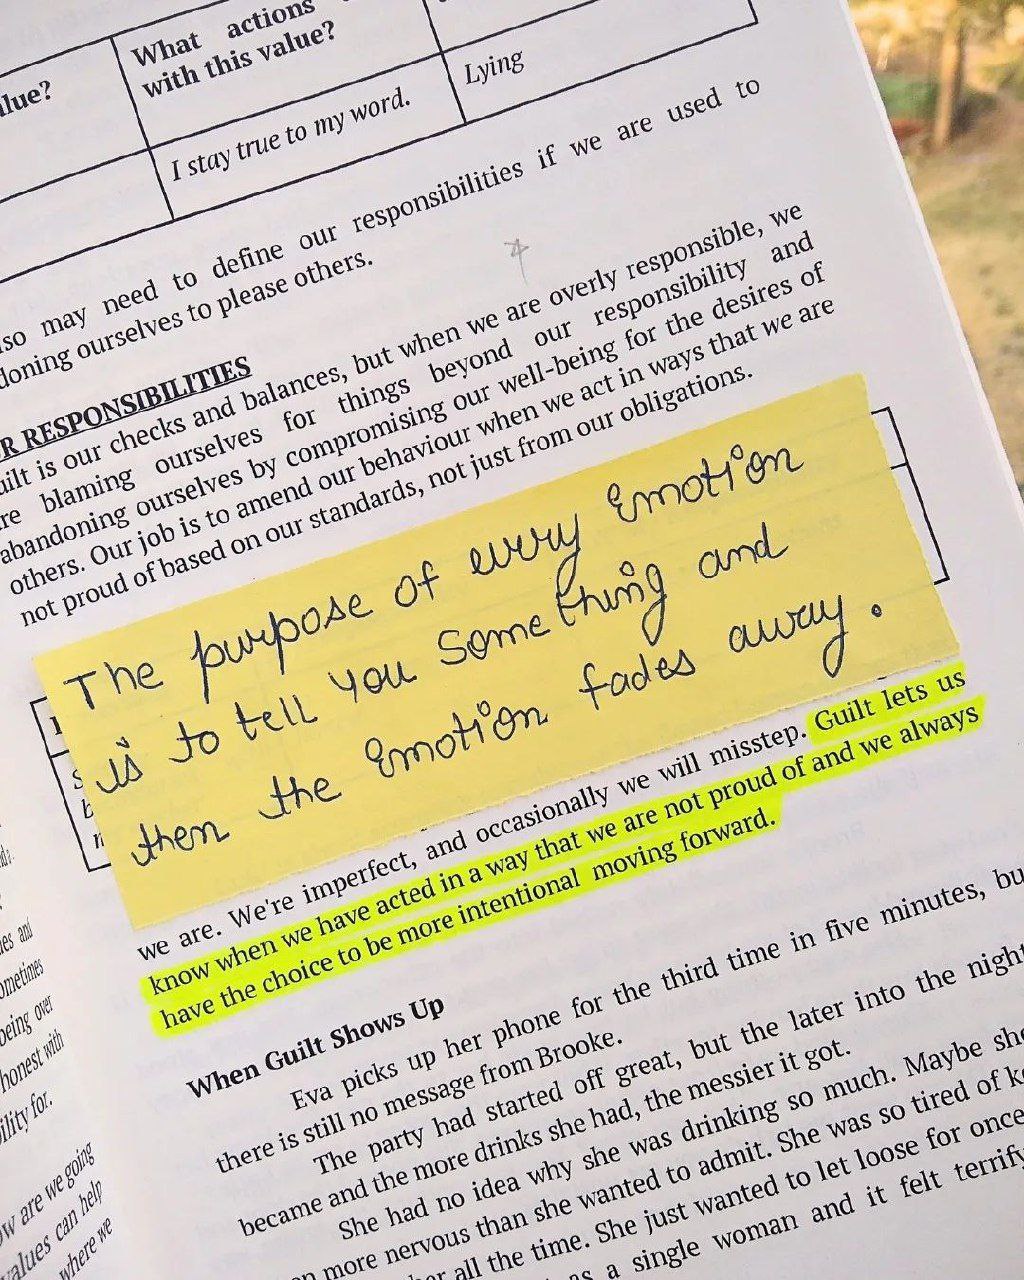 What actions
with this value?
I stay true to my word.
Lying
may need to define our responsibilities if we are used to
ourselves to please others.
RESPONSIBILITIES
is our checks and balances, but when we are overly responsible, we
blaming ourselves for things beyond our responsibility and
abandoning ourselves by compromising our well-being for the desires of
others. Our job is to amend our behaviour when we act in ways that we are
not proud of based on our standards, not just from our obligations.
The purpose of every Emotion
is to tell you Something and
then the Emotion fades away.
we are. We're imperfect, and occasionally we will misstep. Guilt lets us
know when we have acted in a way that we are not proud of and we always
have the choice to be more intentional moving forward.
When Guilt Shows Up
Eva picks up her phone for the third time in five minutes,
there is still no message from Brooke.
The party had started off great, but the later into the night
became and the more drinks she had, the messier it got.
She had no idea why she was drinking so much. Maybe
more nervous than she wanted to admit. She was so tired of
all the time. She just wanted to let loose for once
a single woman and it felt
and
being over
honest with
for.
are we going
values can help
where we